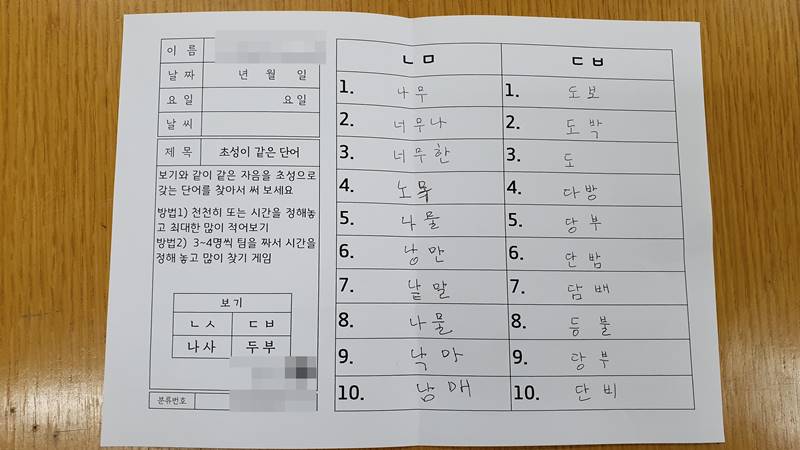 이 름
날 짜 년 월 일
요 일 요 일
날 씨
제 목 초성이 같은 단어
보기와 같이 같은 자음을 초성으로
갖는 단어를 찾아서 써 보세요
방법1) 천천히 또는 시간을 정해놓
고 최대한 많이 적어보기
방법2) 3~4명씩 팀을 짜서 시간을
정해 놓고 많이 찾기 게임
보 기
ㄴ ㅅ ㄷ ㅂ
나 사 두 부
분류번호
ㄴ ㅁ ㄷ ㅂ
1. 나 무 1. 도 보
2. 너 무 나 2. 도 박
3. 너 무 한 3. 도
4. 노 목 4. 다 방
5. 나 물 5. 당 부
6. 낭 만 6. 단 밤
7. 낱 말 7. 담 배
8. 나 물 8. 등 불
9. 낙 마 9. 당 부
10. 남 매 10. 단 비